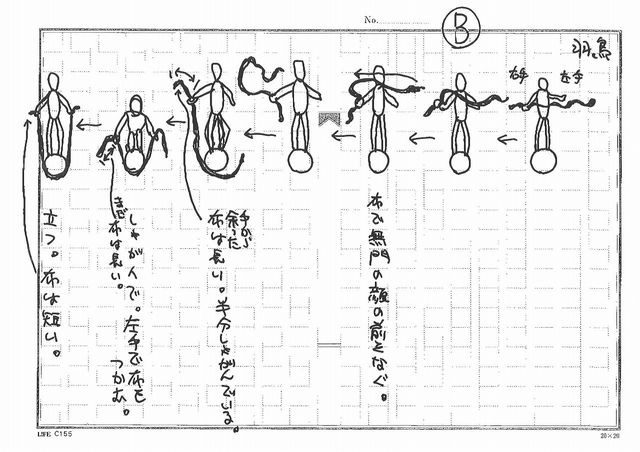 No.
B
羽鳥
右手
左手
布で無門の顔の前をなぐ。
手から
余った
布は長い。半分しゃがんでいる。
しゃがんで。左手で布を
つかむ。
まだ布は長い。
立つ。布は短い。
LIFE C155
20×20